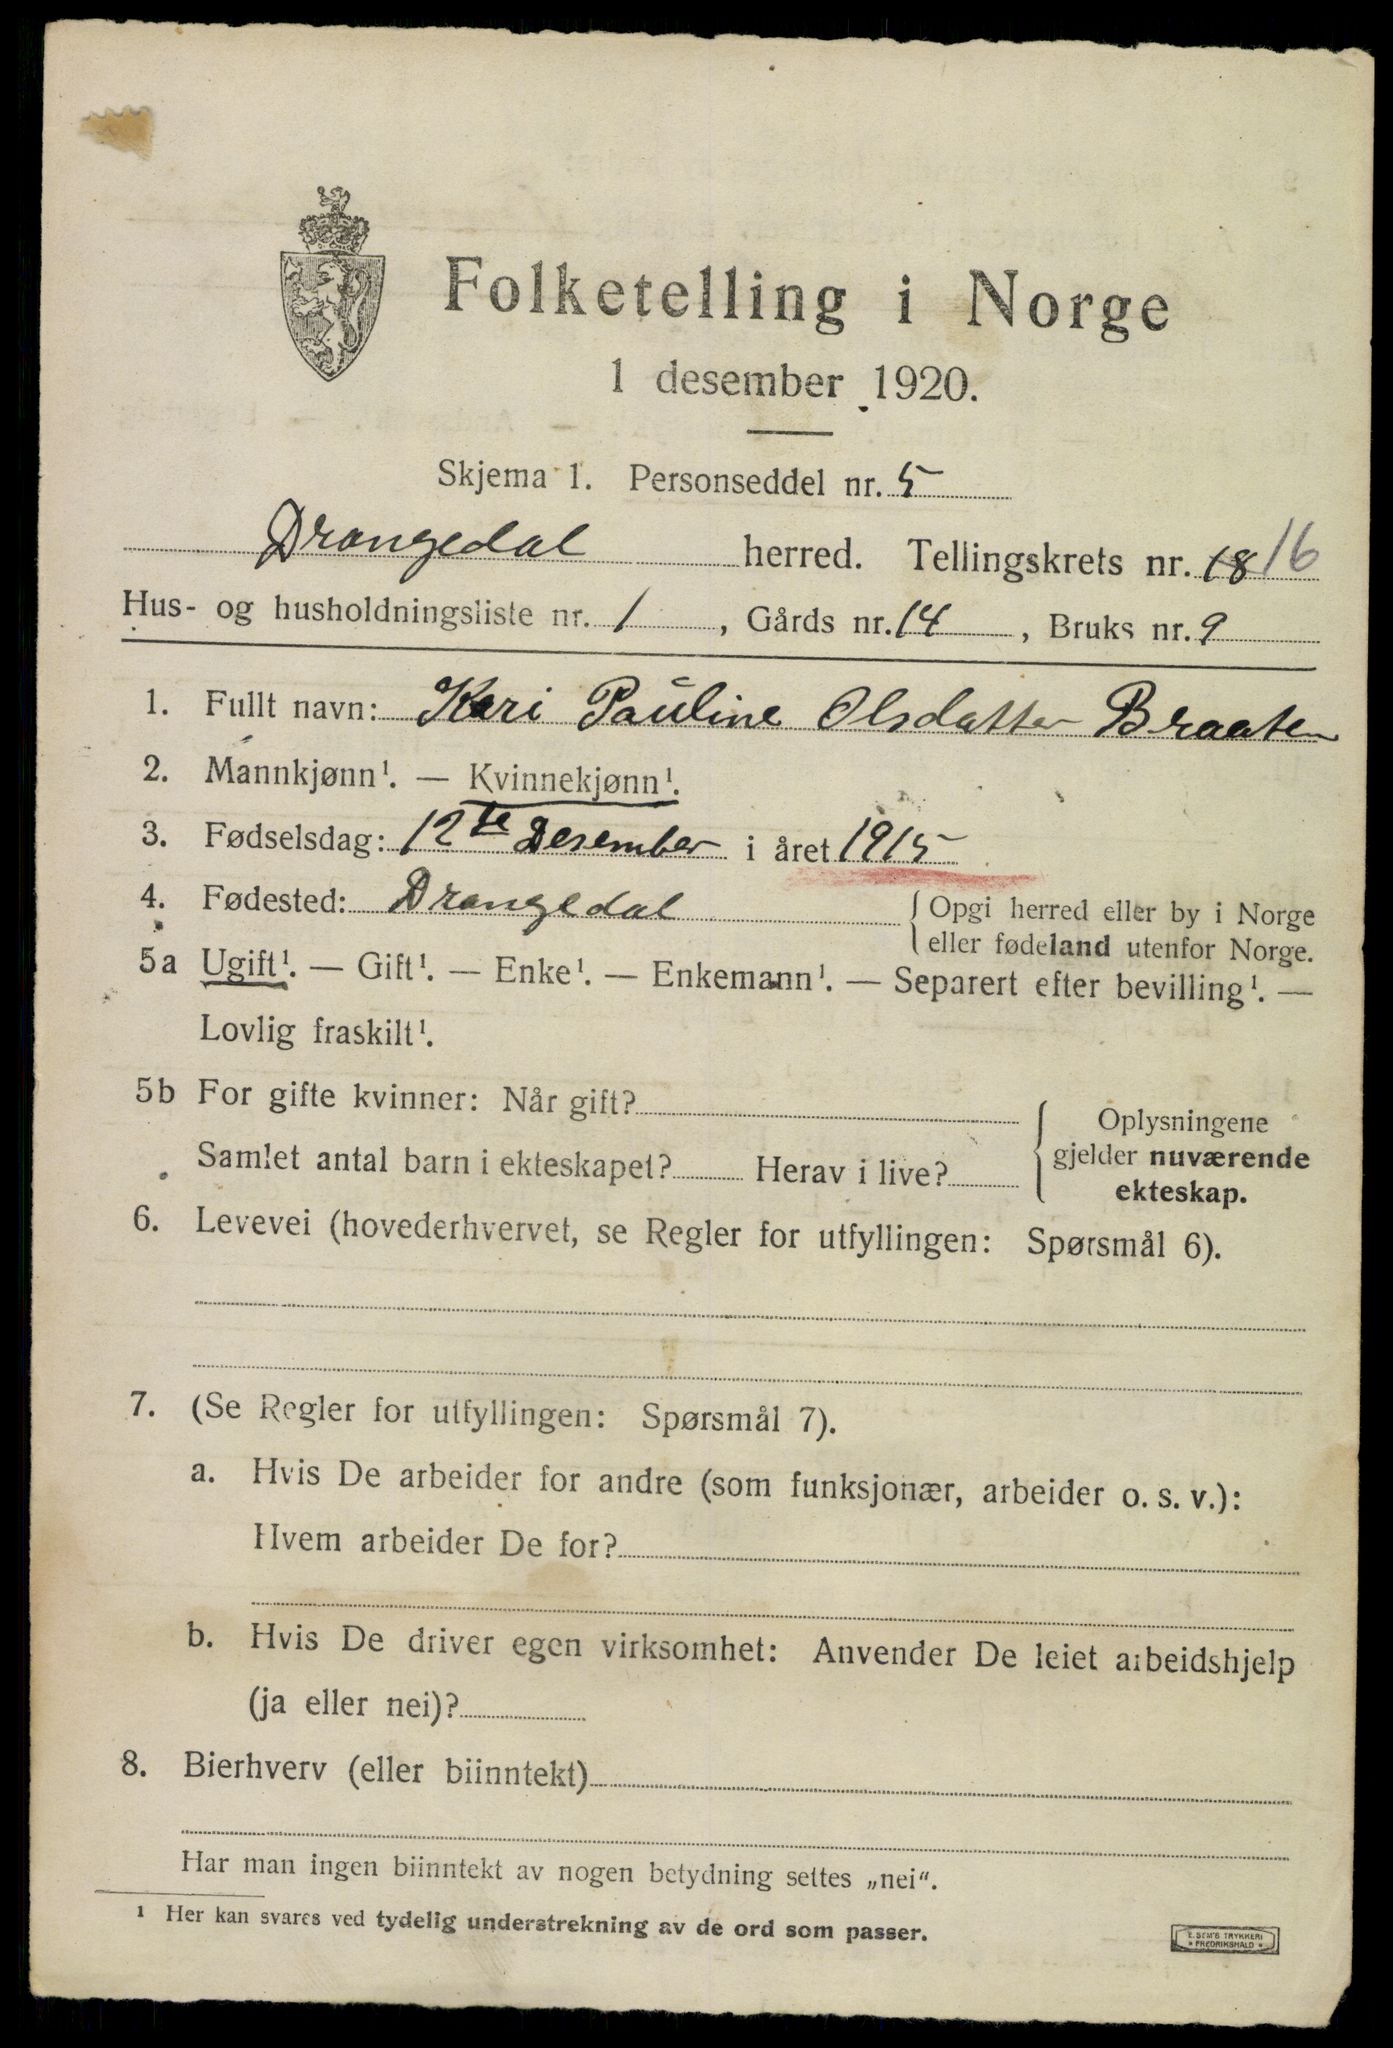 Folketelling i Norge
1 desember 1920.
Skjema 1. Personseddel nr. 5
Drangedal herred. Tellingskrets nr. 18 16
Hus- og husholdningsliste nr. 1, Gårds nr. 14, Bruks nr. 9
1. Fullt navn: Kari Pauline Olsdatter Braaten
2. Mannkjønn¹. — Kvinnekjønn¹.
3. Fødselsdag: 12te Desember i året 1915
4. Fødested: Drangedal { Opgi herred eller by i Norge
eller fødeland utenfor Norge.
5a Ugift¹. — Gift¹. — Enke¹. — Enkemann¹. — Separert efter bevilling¹. —
Lovlig fraskilt¹.
5b For gifte kvinner: Når gift?
Samlet antal barn i ekteskapet? Herav i live?
{ Oplysningene
gjelder nuværende
ekteskap.
6. Levevei (hovederhvervet, se Regler for utfyllingen: Spørsmål 6).
7. (Se Regler for utfyllingen: Spørsmål 7).
a. Hvis De arbeider for andre (som funksjonær, arbeider o. s. v.):
Hvem arbeider De for?
b. Hvis De driver egen virksomhet: Anvender De leiet arbeidshjelp
(ja eller nei)?
8. Bierhverv (eller biinntekt)
Har man ingen biinntekt av nogen betydning settes „nei“.
¹ Her kan svares ved tydelig understrekning av de ord som passer.
E. SEM'S TRYKKERI
* FREDRIKSHALD *